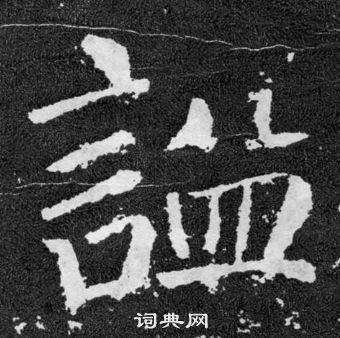 謚
词典网